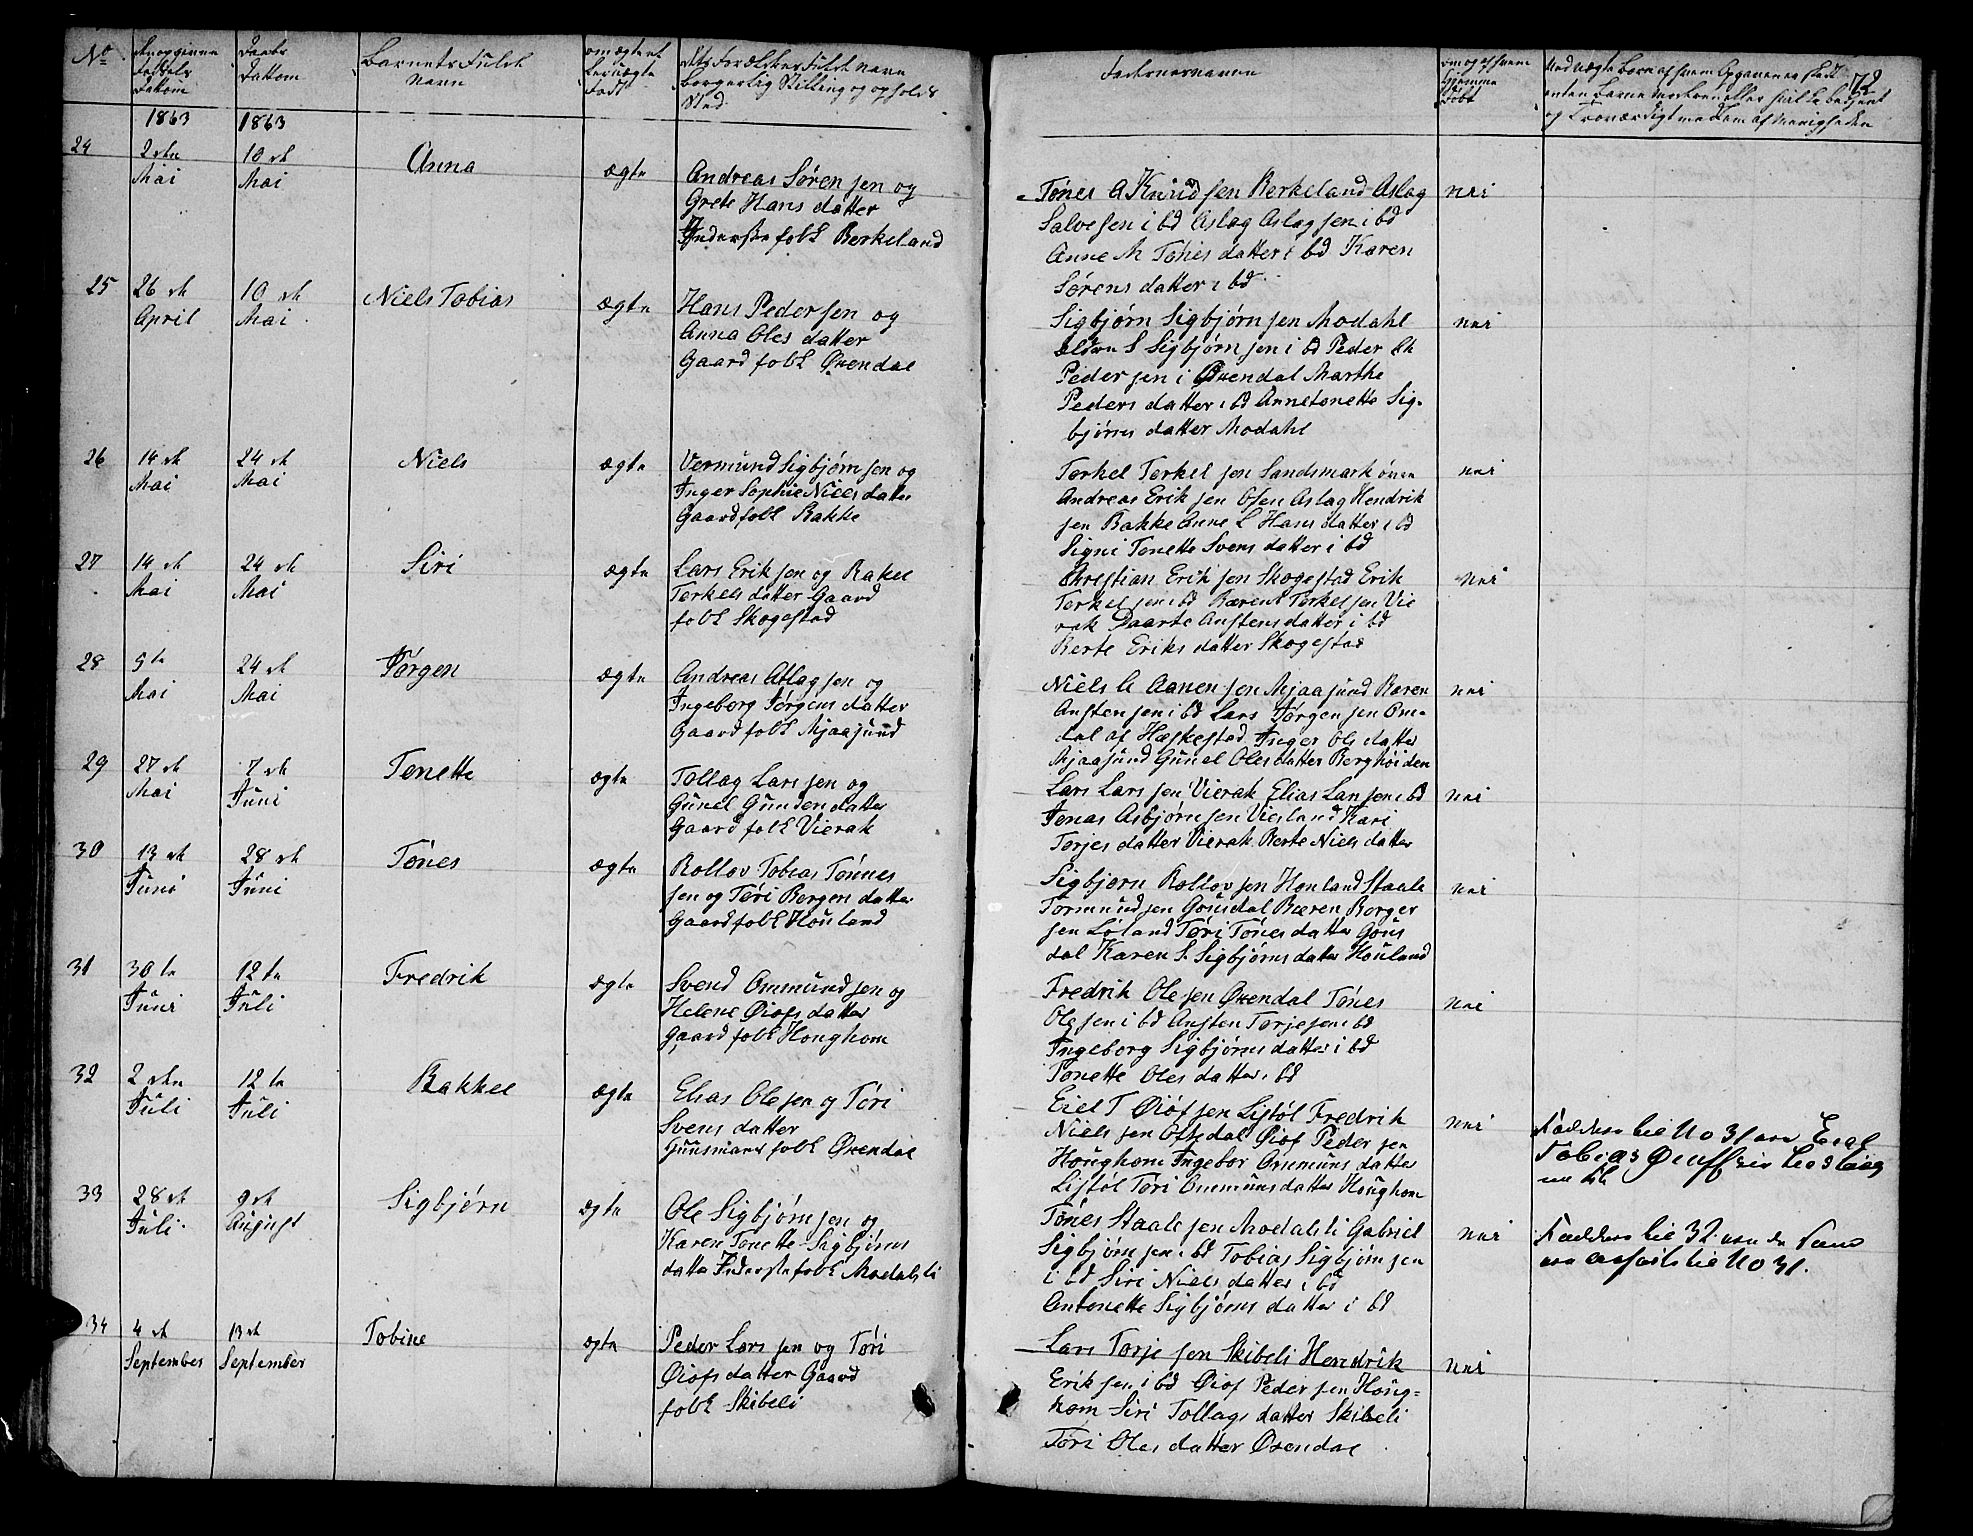 No
Fødsels
Datum
Daabs
Datum
Barnets Fulde
Navn
om ægte el
uægte
født
Forældres Fulde navn
borgerlig Stilling og opholds
Sted
Faddernes navne
72
1863
1863
24
2den
Mai
10de
Mai
Anna
ægte
Andreas Sørensen og
Grete Hans datter
Inderste folk Berkeland
Tønes A Knudsen Berkeland Aslag
Salvesen i bd Aslag Aslagsen i bd
Anne M Tønes datter i bd Karen
Sørens datter i bd
nei
25
26de
April
10de
Mai
Niels Tobias
ægte
Hans Pedersen og
Anna Oles datter
Gaardfolk Øxendal
Sigbjørn Sigbjørnsen Modahl
S Sigbjørnsen i bd Peder
Pedersen i Øxendal Marthe
Peders datter i bd Annetonette Sig-
bjørns datter Modahl
nei
26
14de
Mai
24de
Mai
Niels
ægte
Vermund Sigbjørnsen og
Inger Sophie Niels datter
Gaardfolk Bakke
Terkel Terkelsen Sandsmark øvre
Andreas Eriksen Osen Aslag Hendrik
sen Bakke Anne L Hans datter i bd
Signi Tonette Svens datter i bd
nei
27
14de
Mai
24de
Mai
Siri
ægte
Lars Eriksen og Rakel
Terkels datter Gaard
folk Skogestad
Christian Eriksen Skogestad Erik
Terkelsen i bd Bærent Terkelsen Vie
rak Daarte Anstens datter i bd
Berte Eriks datter Skogestad
nei
28
5te
Mai
24de
Mai
Jørgen
ægte
Andreas Atlagsen og
Ingeborg Jørgens datter
Gaardfolk Mjaasund
Niels A Aanensen Mjaasund Bæren
Anstensen i bd Lars Jørgensen Om-
dal af Heskestad Inger Ols datter
Mjaasund Gunel Oles datter Berghøiden
nei
29
27de
Mai
7de
Juni
Tenette
ægte
Tollag Larsen og
Gunel Gunden datter
Gaardfolk Vierak
Lars Larsen Vierak Elias Larsen i bd
Jonas Asbjørnsen Viesland Kari
Torjes datter Vierak Berte Niels datter
nei
30
13de
Juni
28de
Juni
Tønes
ægte
Rollov Tobias Tønnes
sen og Tøri Bergen datter
Gaardfolk Houland
Sigbjørn Rollovsen Houland Staale
Tormundsen Gousdal Bæren Borger
sen Loland Tøri Tønes datter Gous
dal Karen S. Sigbjørns datter Houland
nei
31
30te
Juni
12te
Juli
Fredrik
ægte
Svend Ommundsen og
Helene Øiofs datter
Gaardfolk Honghom
Fredrik Olesen Øxendal Tønes
Olesen i bd Ansten Torjesen bd
Ingeborg Sigbjørns datter i bd
Tonette Oles datter i bd
nei
32
2den
Juli
12te
Juli
Rakkel
ægte
Elias Olesen og Tøri
Svens datter
Huusmans folk Øxendal
Eiel T Øiofsen Listøl Fredrik
Nielsen Oftedal Øiof Pedersen
Houghom Ingebor Ommuns datter
Listøl Tøri Ommuns datter Houghom
nei
Faddere til No 31 ere Eiel
Tobias
33
28de
Juli
9de
August
Sigbjørn
ægte
Ole Sigbjørnsen og
Karen Tonette Sigbjørns
datter Inderste folk Modalsli
Tønes Staalesen Modalsli Gabriel
Sigbjørnsen i bd Tobias Sigbjørnsen
i bd Siri Niels datter i bd
Antonette Sigbjørns datter i bd
nei
Faddere til 32 ere de som
ere anførte til No 31.
34
4de
September
13de
September
Tobine
ægte
Peder Larsen og Tøri
Øiofs datter Gaard
folk Skibeli
Lars Torjesen Skibeli Hendrik
Eriksen i bd Øiof Pedersen Houg-
hom Siri Tollags datter Skibeli
Tøri Oles datter Øxendal
nei